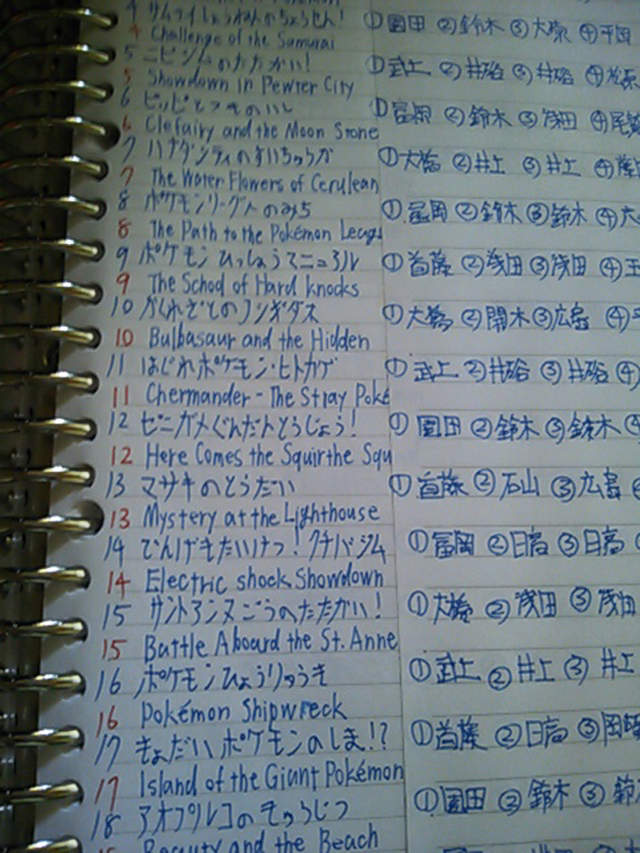 4 サムライしょうねんのちょうせん! ①園田 ②鈴木 ③大
4 Challenge of the Samurai
5 ニビジムのたたかい! ①武上 ②井硲 ③井硲 ④
5 Showdown in Pewter City
6 ピッピとつきのいし ①冨岡 ②鈴木 ③浅田 ④尾
6 Clefairy and the Moon Stone
7 ハナダシティのすいちゅうか ①大橋 ②井上 ③井上 ④
7 The Water Flowers of Cerulean
8 ポケモンリーグへのみち ①冨岡 ②鈴木 ③鈴木 ④大
8 The Path to the Pokémon Leagu
9 ポケモンひっしょうマニュアル ①首藤 ②浅田 ③浅田 ④玉
9 The School of Hard knocks
10 かくれざとのフシギダネ ①大橋 ②開木 ③広島 ④
10 Bulbasaur and the Hidden
11 はぐれポケモン・ヒトカゲ ①武上 ②井硲 ③井硲 ④
11 Chermander - The Stray Poké
12 ゼニガメぐんだんとうじょう! ①園田 ②鈴木 ③鈴木 ④
12 Here Comes the Squirthe Squ
13 マサキのとうだい ①首藤 ②石山 ③広島
13 Mystery at the Lighthouse
14 でんげきたいけつ!クチバジム ①冨岡 ②日高 ③日高
14 Electric shock Showdown
15 サントアンヌごうのたたかい! ①大橋 ②浅田 ③浅田
15 Battle Aboard the St. Anne
16 ポケモンひょうりゅうき ①武上 ②井上 ③井上
16 Pokémon Shipwreck
17 きょだいポケモンのしま!? ①首藤 ②日高 ③岡崎
17 Island of the Giant Pokémon
18 アオプルコのきゅうじつ ①園田 ②鈴木 ③鈴
Beauty and the Beach